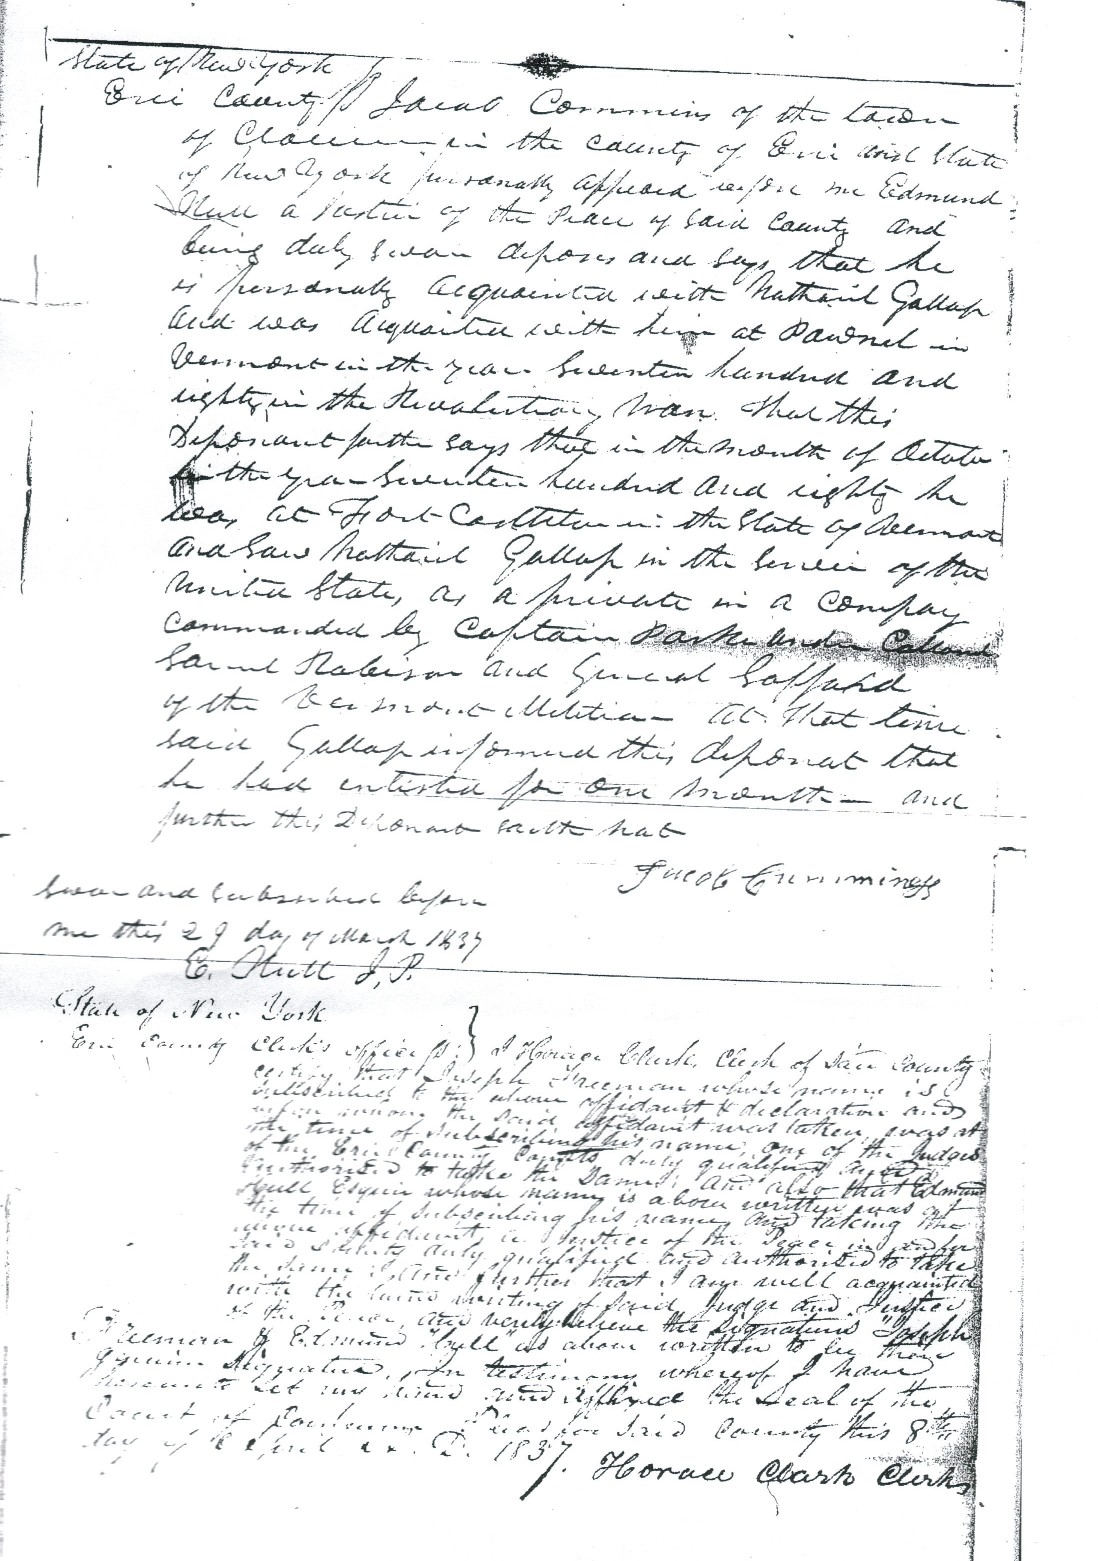 State of New York
Erie County ss Jacob Commins of the town
of Clarence in the county of Erie and State
of New York personally appeard before me Edmund
Hull a Justice of the Peace of said County and
being duly sworn deposes and says that he
is personally acquainted with Nathaniel Gallup
and was acquainted with him at Pownel in
Vermont in the year Seventeen hundred and
eighty in the Revolutionary War that this
Deponant further says that in the month of October
in the year Seventeen hundred and eighty he
was at Fort Castleton in the State of Vermont
and saw Nathaniel Gallup in the service of the
United States as a private in a company
commanded by Captain Parke under
Samuel Robison and General Saffard
of the Vermont Militia - At that time
said Gallup informed this deponat that
he had entisted for one month - and
further this Deponant saith not
Jacob Cummings
Sworn and Subscribed before
me this 29 day of March 1837
E. Hull J.P.
State of New York
Erie County Clerk's office ss. } I Horace Clark, Clerk of said County
certify that Joseph Freeman whose name is
subscribed to the above affidavit & declaration and
before whom the said affidavit was taken, was at
the time of subscribing his name, one of the Judges
of the Erie County Courts duly qualified and
authorised to take the same; and also that Edmund
Hull Esquire whose name is above written was at
the time of subscribing his name and taking the
above affidavit, a Justice of the Peace in and for
said County duly qualified and authorised to take
the same; and further that I am well acquainted
with the hand writing of said Judge and Justice
of the Peace, and verily believe the signatures "Joseph
Freeman & Edmund Hull" as above written to be their
genuine signatures. In testimony whereof I have
hereunto set my hand and affixed the Seal of the
Court of Common Pleas for said County this 8th
day of April A. D. 1837.
Horace Clark Clerk